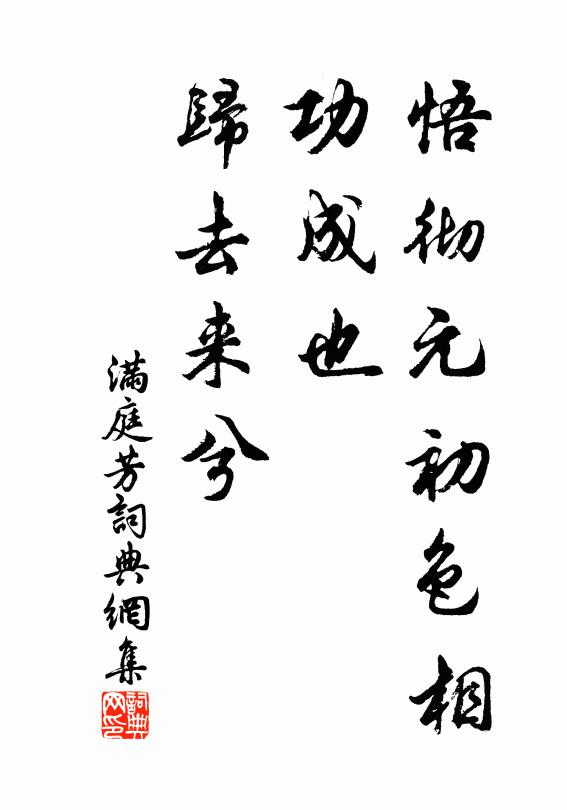 悟彻元初色相
功成也
歸去来兮
满庭芳詞典網集
詞典
网印